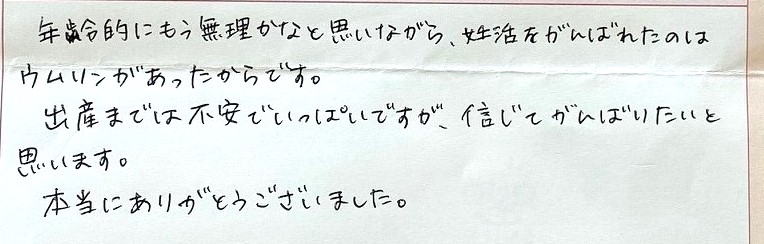 年齢的にもう無理かなと思いながら、妊活をがんばれたのは
ウムリンがあったからです。
出産までは不安でいっぱいですが、信じてがんばりたいと
思います。
本当にありがとうございました。